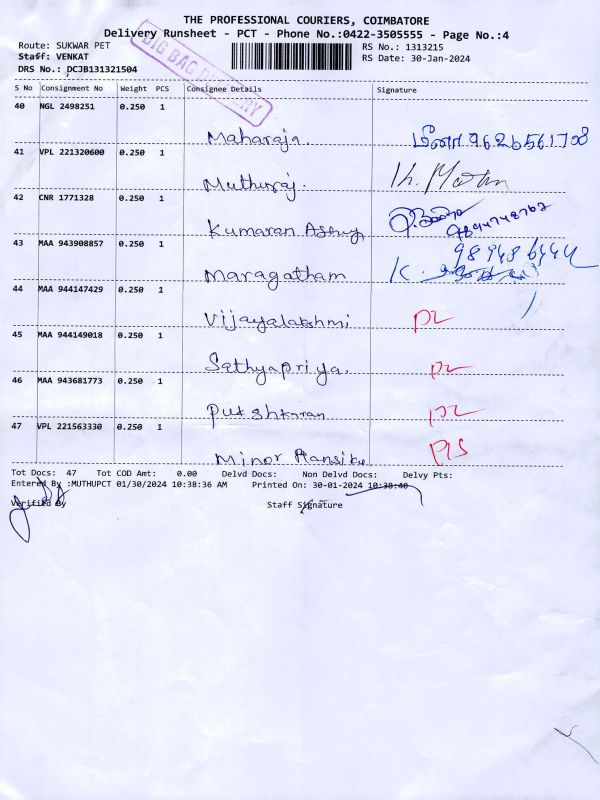 THE PROFESSIONAL COURIERS, COIMBATORE
Delivery Runsheet - PCT - Phone No.:0422-3505555 - Page No.:4
Route: SUKWAR PET
RS No.: 1313215
Staff: VENKAT
RS Date: 30-Jan-2024
DRS No.: DCJB131321504
BIG BAG DELIVERY
S No Consignment No Weight PCS Consignee Details Signature
40 NGL 2498251 0.250 1
Maharaja மீனா 9626561708
41 VPL 221320600 0.250 1
Muthuraj.
42 CNR 1771328 0.250 1
Kumaran
43 MAA 943908857 0.250 1
Maragatham
44 MAA 944147429 0.250 1
Vijayalakshmi DL
45 MAA 944149018 0.250 1
Sathyapriya. DL
46 MAA 943681773 0.250 1
DL
47 VPL 221563330 0.250 1
Minor
Tot Docs: 47 Tot COD Amt: 0.00 Delvd Docs: Non Delvd Docs: Delvy Pts:
Entered By :MUTHUPCT 01/30/2024 10:38:36 AM Printed On: 30-01-2024 10:38:40
Verified By Staff Signature